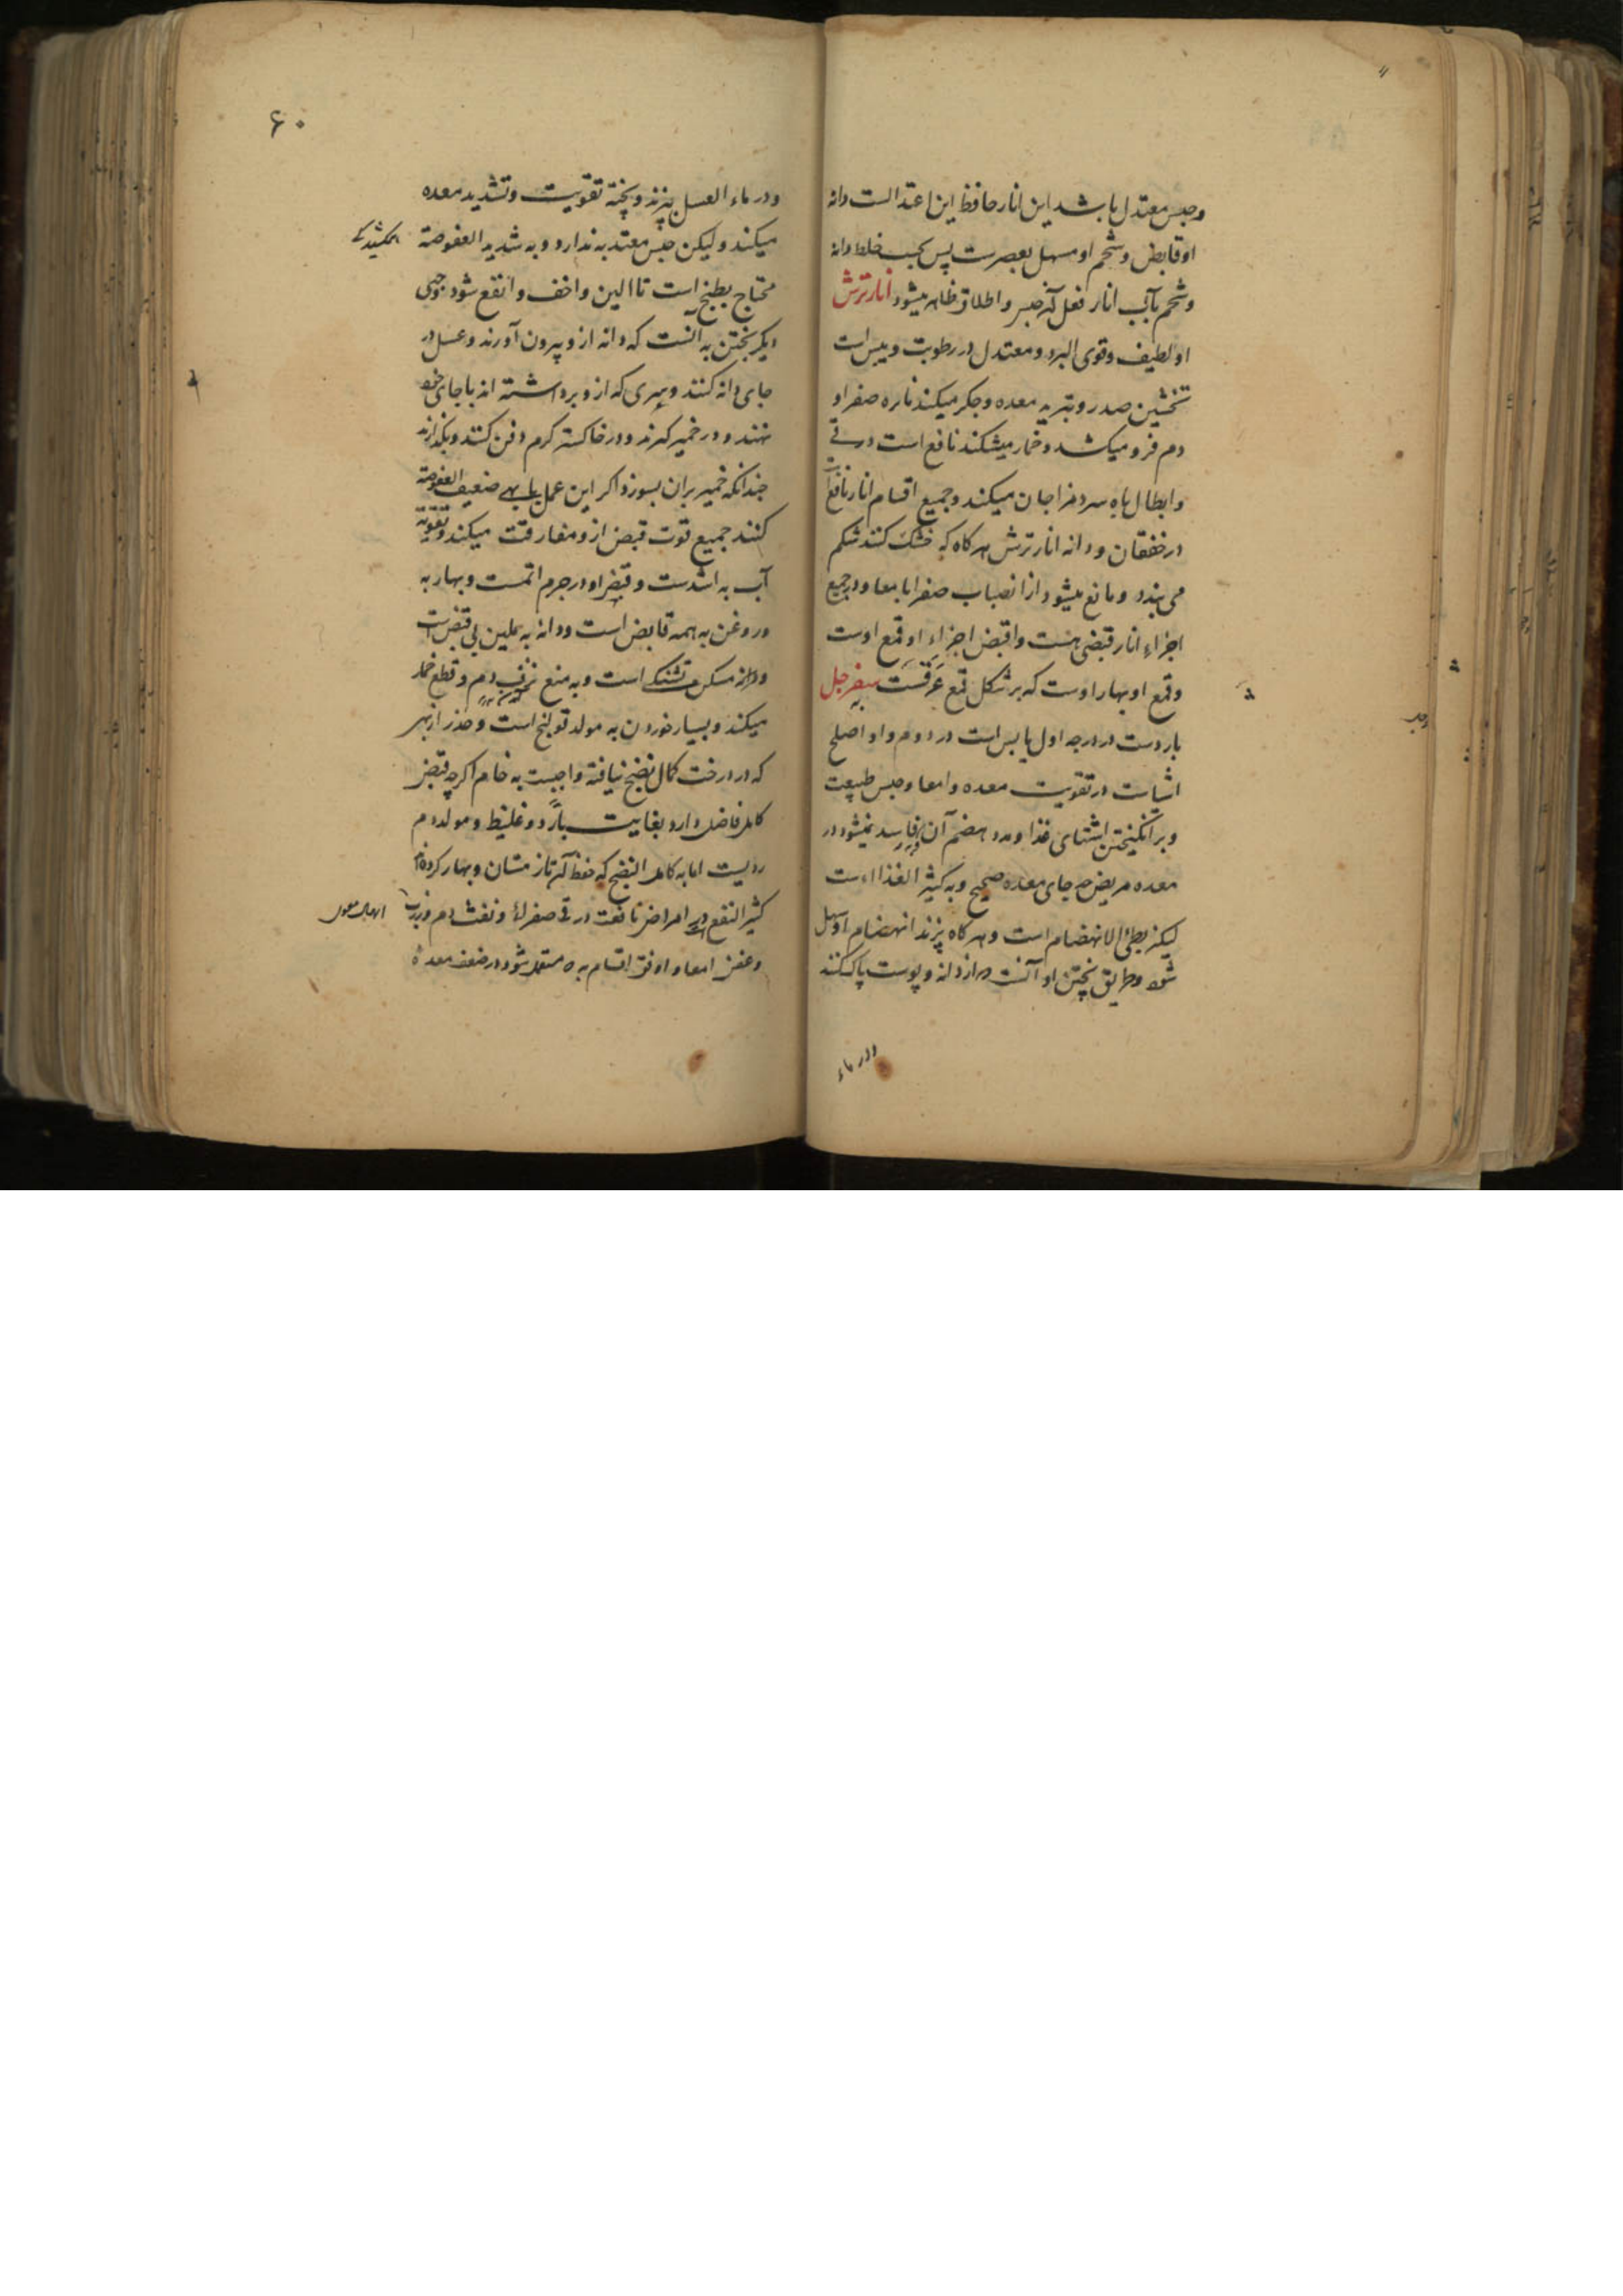 وحبس معتدل باشد این انار حافظ این اعتدالست دانه
او قابض و شحم او مسهل بعصرست پس بحسب خلط دانه
و شحم بآب انار فعل آن حبس و اطلاق ظاهر میشود انار ترش
او لطیف و قوی البرد و معتدل در رطوبت و یبس است
تخشین صدر و تبرید معده و جگر میکند نایره صفرا و
دم فرو میکشد و خمار میشکند نافع است در قی
و ابطال باه سرد مزاجان میکند و جمیع اقسام انار نافع است
در خفقان و دانه انار ترش هرکاه که خشک کنند شکم
می بندد و مانع میشود از انصباب صفرا بامعا و در جمیع
اجزاء انار قبضی هست و اقبض اجزاء او قمع اوست
و قمع او بهار اوست که بر شکل قمع عرقست سفرجل
به
باردست در درجه اول یابس است در دوم و او اصلح
اشیاست در تقویت معده و امعا و حبس طبیعت
و برانکیختن اشتهای غذا و مدد هضم آن فاسد نمیشود در
معده مریض چه جای معده صحیح و به کثیر الغذا است
لیکن بطئ الانهضام است و هرکاه پزند انهضام او سهل
شود و طریق پختن او آنست که از دانه و پوست پاک کنند
ودر ماء
۶۰
ودر ماء العسل پزند و پخته تقویت و تشدید معده
میکند و لیکن حبس معتد به ندارد و به شدید العفوصة
محتاج بطبخ است تا الین و اخف و انفع شود وجهی
دیکر پختن به آنست که دانه ازو بیرون آورند و عسل در
جای دانه کنند و سری که ازو برداشته اند باجای خود
نهند و در خمیر کیرند و در خاکستر کرم دفن کنند و بکذارند
چندانکه خمیر بران بسوزد اکر این عمل با بهی ضعیف العفوصة
کنند جمیع قوت قبض ازو مفارقت میکند و تقویة
آب به اشدست و قبض او در جرم اتمست و بهار به
و روغن به همه قابض است و دانه به ملین بی قبض است
و دانه مسکن تشنکی است و به منع نزف دم و قطع خمار
میکند و بسیار خوردن به مولد قولنج است و حذر از بهی
که در درخت کمال نضج نیافته واجبست به خام اکرچه قبض
کامل فاضل دارد بغایت بارد و غلیظ و مولد دم
ردیست اما به کامل النضج که حفظ آن تا زمستان و بهار کرده اند
کثیر النفع در امراض نافعست در قی صفرا و نفث دم و ذرب
و عفن امعا و اوفق اقسام به مستعمل شود در ضعف معده
اسهال معوی